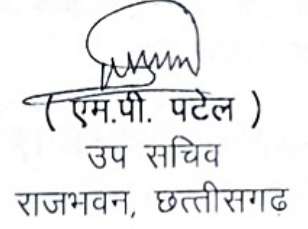 ( एम.पी. पटेल )
उप सचिव
राजभवन, छत्तीसगढ